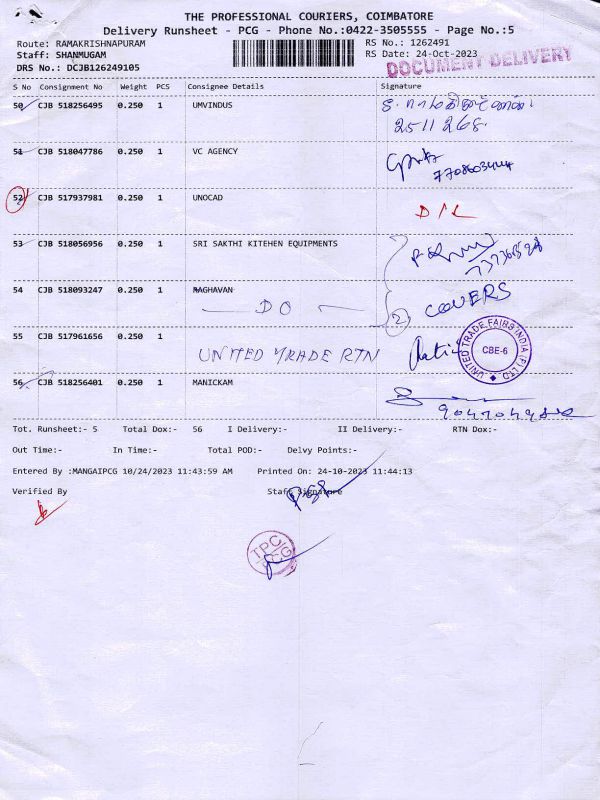 THE PROFESSIONAL COURIERS, COIMBATORE
Delivery Runsheet - PCG - Phone No.:0422-3505555 - Page No.:5
Route: RAMAKRISHNAPURAM RS No.: 1262491
Staff: SHANMUGAM RS Date: 24-Oct-2023
DRS No.: DCJB126249105
DOCUMENT DELIVERY
S No Consignment No Weight PCS Consignee Details Signature
50 CJB 518256495 0.250 1 UMVINDUS
51 CJB 518047786 0.250 1 VC AGENCY
52 CJB 517937981 0.250 1 UNOCAD D/L
53 CJB 518056956 0.250 1 SRI SAKTHI KITEHEN EQUIPMENTS
54 CJB 518093247 0.250 1 RAGHAVAN
DO
2 COVERS
55 CJB 517961656 0.250 1
UNITED TRADE RTN
UNITED TRADE FAIRS INDIA (P) LTD
CBE-6
56 CJB 518256401 0.250 1 MANICKAM
Tot. Runsheet:- 5 Total Dox:- 56 I Delivery:- II Delivery:- RTN Dox:-
Out Time:- In Time:- Total POD:- Delvy Points:-
Entered By :MANGAIPCG 10/24/2023 11:43:59 AM Printed On: 24-10-2023 11:44:13
Verified By Staff Signature
TPC/
PCG